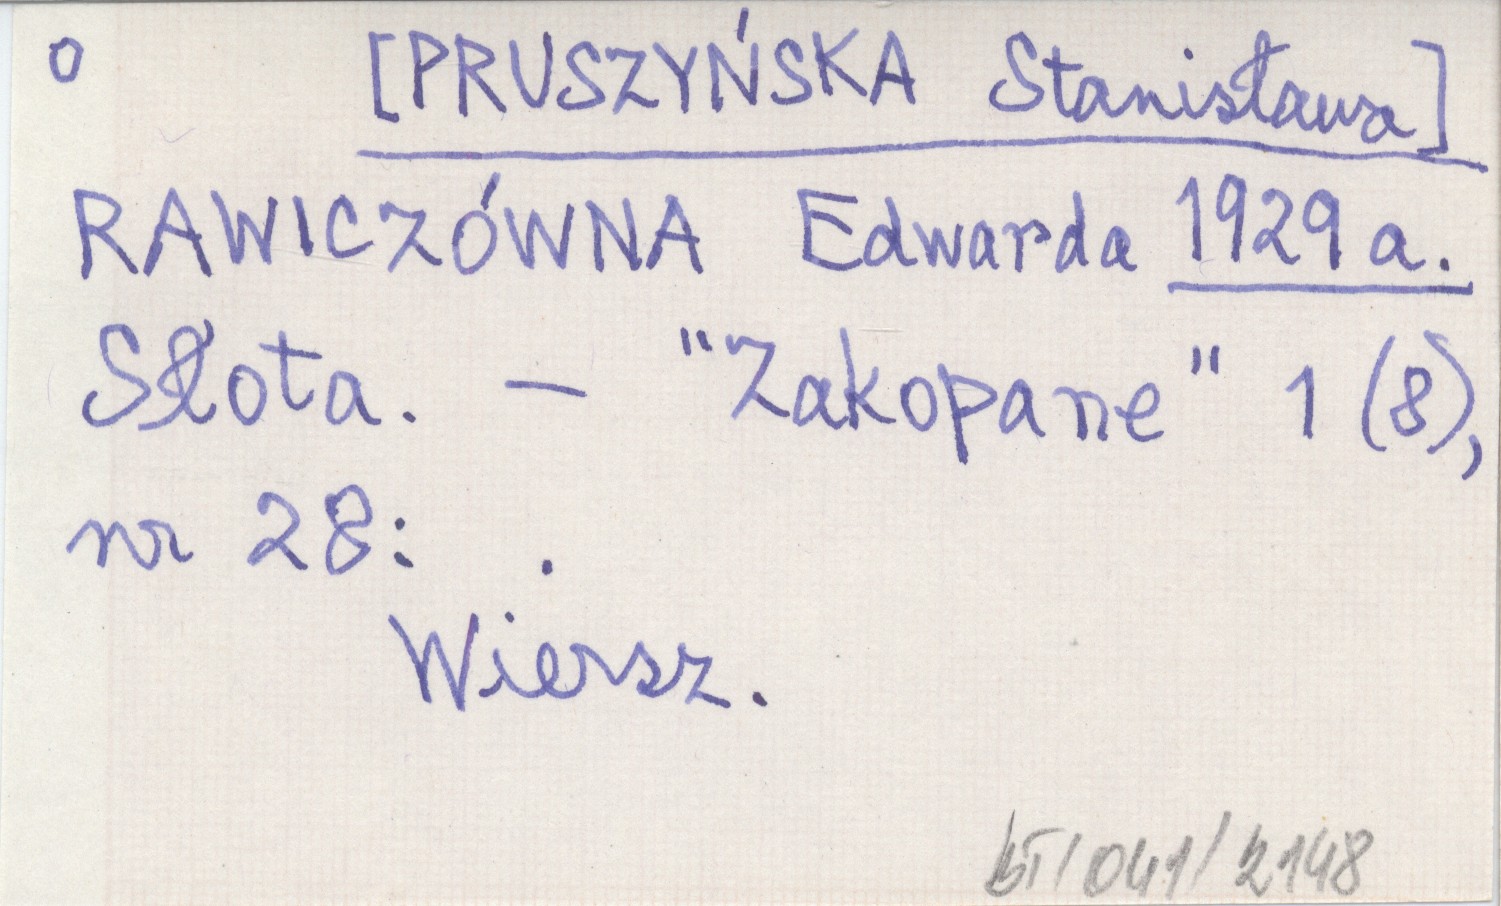 o [PRUSZYŃSKA Stanisława]
RAWICZÓWNA Edwarda 1929 a.
Słota. — "Zakopane" 1 (8),
nr 28: .
Wiersz.
bT/041/2148